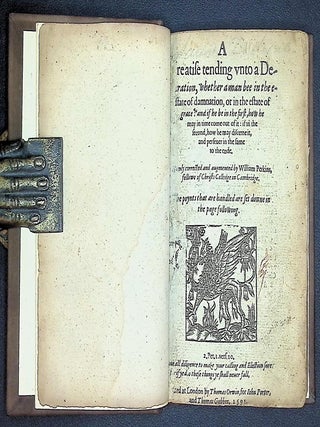 A
reatise tending vnto a De-
aration, whether a man bee in the e-
state of damnation, or in the estate of
grace: and if he be in the first, how he
may in time come out of it: if in the
second, how he may discerne it,
and perseuer in the same
to the ende.
corrected and augmented by William Perkins,
fellowe of Christs Colledge in Cambridge.
The poynts that are handled are set downe in
the page following.
2. Pet. 1. vers. 10.
all diligence to make your calling and Election sure:
if ye do these things ye shall neuer fall.
at London by Thomas Orwin for Iohn Porter,
and Thomas Gubbin. 1591.